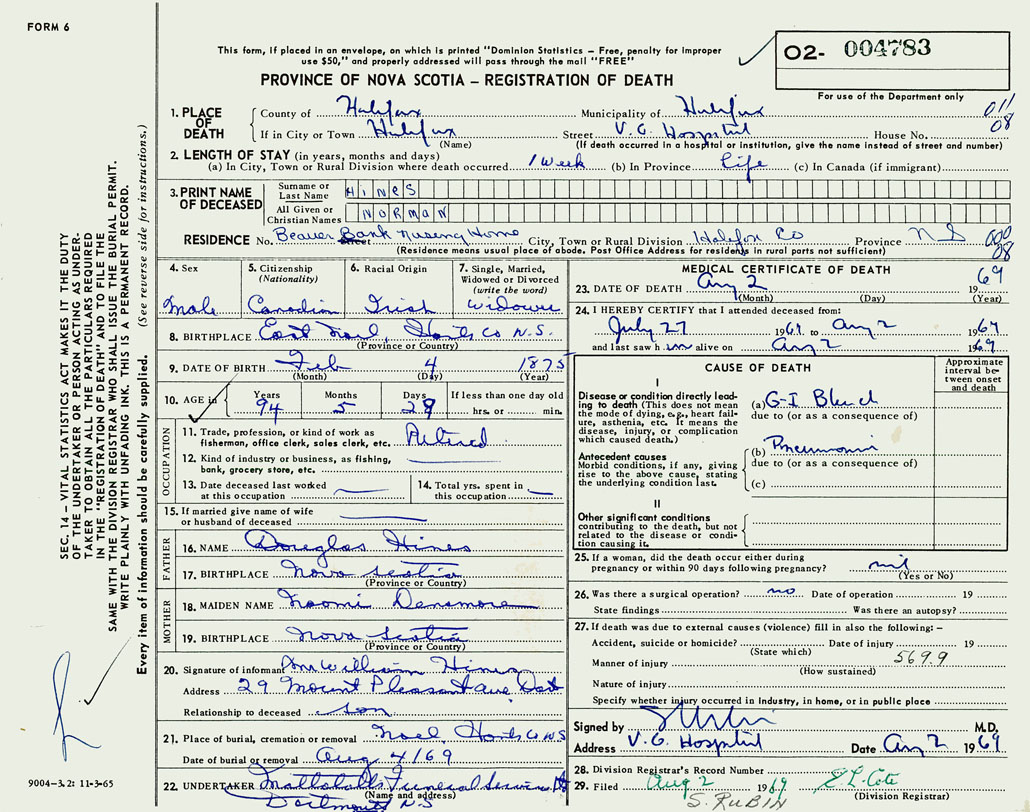 FORM 6
This form, if placed in an envelope, on which is printed "Dominion Statistics – Free, penalty for improper
use $50," and properly addressed will pass through the mail "FREE"
PROVINCE OF NOVA SCOTIA – REGISTRATION OF DEATH
O2- 004783
For use of the Department only
1. PLACE OF DEATH County of Halifax Municipality of Halifax 011
If in City or Town Halifax Street V. G. Hospital House No. 08
(Name) (If death occurred in a hospital or institution, give the name instead of street and number)
2. LENGTH OF STAY (in years, months and days)
(a) In City, Town or Rural Division where death occurred 1 week (b) In Province Life (c) In Canada (if immigrant)
3. PRINT NAME OF DECEASED
Surname or Last Name HINES
All Given or Christian Names NORMAN
RESIDENCE No. Beaver Bank Nursing Home City, Town or Rural Division Halifax Co Province N S 000
Street
(Residence means usual place of abode. Post Office Address for residents in rural parts not sufficient) 08
4. Sex
Male
5. Citizenship
(Nationality)
Canadian
6. Racial Origin
Irish
7. Single, Married,
Widowed or Divorced
(write the word)
Widower
8. BIRTHPLACE East Noel, Hants Co N.S.
(Province or Country)
9. DATE OF BIRTH Feb 4 1875
(Month) (Day) (Year)
10. AGE in Years Months Days If less than one day old
94 5 28 hrs. or min.
OCCUPATION
11. Trade, profession, or kind of work as
fisherman, office clerk, sales clerk, etc. Retired
12. Kind of industry or business, as fishing,
bank, grocery store, etc.
13. Date deceased last worked
at this occupation
14. Total yrs. spent in
this occupation
15. If married give name of wife
or husband of deceased
FATHER
16. NAME Douglas Hines
17. BIRTHPLACE Nova Scotia
(Province or Country)
MOTHER
18. MAIDEN NAME Naomi Densmore
19. BIRTHPLACE Nova Scotia
(Province or Country)
20. Signature of informant William Hines
Address 29 Mount Pleasant Ave Dart
Relationship to deceased son
21. Place of burial, cremation or removal Noel Hants Co N.S
Date of burial or removal Aug 4/69
22. UNDERTAKER Mattatalls Funeral Service
(Name and address)
Dartmouth N.S
MEDICAL CERTIFICATE OF DEATH
23. DATE OF DEATH Aug 2 1969
(Month) (Day) (Year)
24. I HEREBY CERTIFY that I attended deceased from:
July 27 1969 to Aug 2 1969
and last saw him alive on Aug 2 1969
CAUSE OF DEATH
Approximate
interval be-
tween onset
and death
I
Disease or condition directly lead-
ing to death (This does not mean
the mode of dying, e.g., heart fail-
ure, asthenia, etc. It means the
disease, injury, or complication
which caused death.)
(a) G-I Bleed
due to (or as a consequence of)
Antecedent causes
Morbid conditions, if any, giving
rise to the above cause, stating
the underlying condition last.
(b) Pneumonia
due to (or as a consequence of)
(c)
II
Other significant conditions
contributing to the death, but not
related to the disease or condi-
tion causing it.
25. If a woman, did the death occur either during
pregnancy or within 90 days following pregnancy? nil
(Yes or No)
26. Was there a surgical operation? no Date of operation 19
State findings Was there an autopsy?
27. If death was due to external causes (violence) fill in also the following: –
Accident, suicide or homicide? Date of injury 19
(State which) 569.9
Manner of injury
(How sustained)
Nature of injury
Specify whether injury occurred in industry, in home, or in public place
Signed by M.D.
Address V. G. Hospital Date Aug 2 1969
28. Division Registrar's Record Number
29. Filed Aug 2 1969 E L Cote
(Division Registrar)
S. RUBIN
SEC. 14 – VITAL STATISTICS ACT MAKES IT THE DUTY
OF THE UNDERTAKER OR PERSON ACTING AS UNDER-
TAKER TO OBTAIN ALL THE PARTICULARS REQUIRED
IN THE "REGISTRATION OF DEATH" AND TO FILE THE
SAME WITH THE DIVISION REGISTRAR WHO SHALL ISSUE THE BURIAL PERMIT.
WRITE PLAINLY WITH UNFADING INK. THIS IS A PERMANENT RECORD.
Every item of information should be carefully supplied. (See reverse side for instructions.)
9004-3.2: 11-3-65